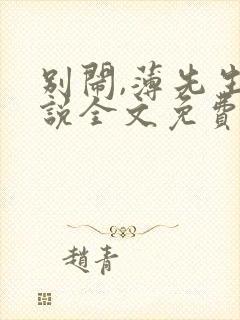 別鬧,薄先生
說全文免費
趙青